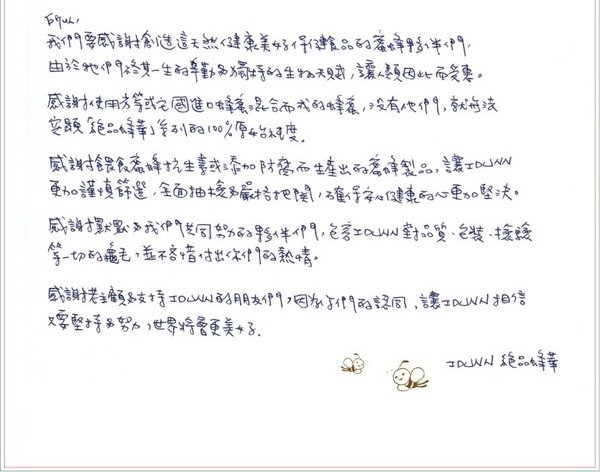 我們要感謝創造這天然健康美好保健食品的蜜蜂夥伴們,
由於牠們終其一生的辛勤與獨特的生物天賦,讓人類因此而受惠。
感謝使用劣等或它國進口蜂蜜混合而成的蜂蜜,沒有他們,就無法
突顯「絕品蜂華」系列的100%原始純度。
感謝餵食蜜蜂抗生素或添加防腐而生產出的蜜蜂製品,讓IDUNN
更加謹慎篩選,全面抽檢與嚴格把關,確保安心健康的心更加堅決。
感謝默默與我們共同努力的夥伴們,包容IDUNN對品質、包裝、檢驗
等一切的龜毛,並不吝惜付出你們的熱情。
感謝老主顧與支持IDUNN的朋友們,因為你們的認同,讓IDUNN相信
只要堅持與努力,世界將會更美好.
IDUNN 絕品蜂華